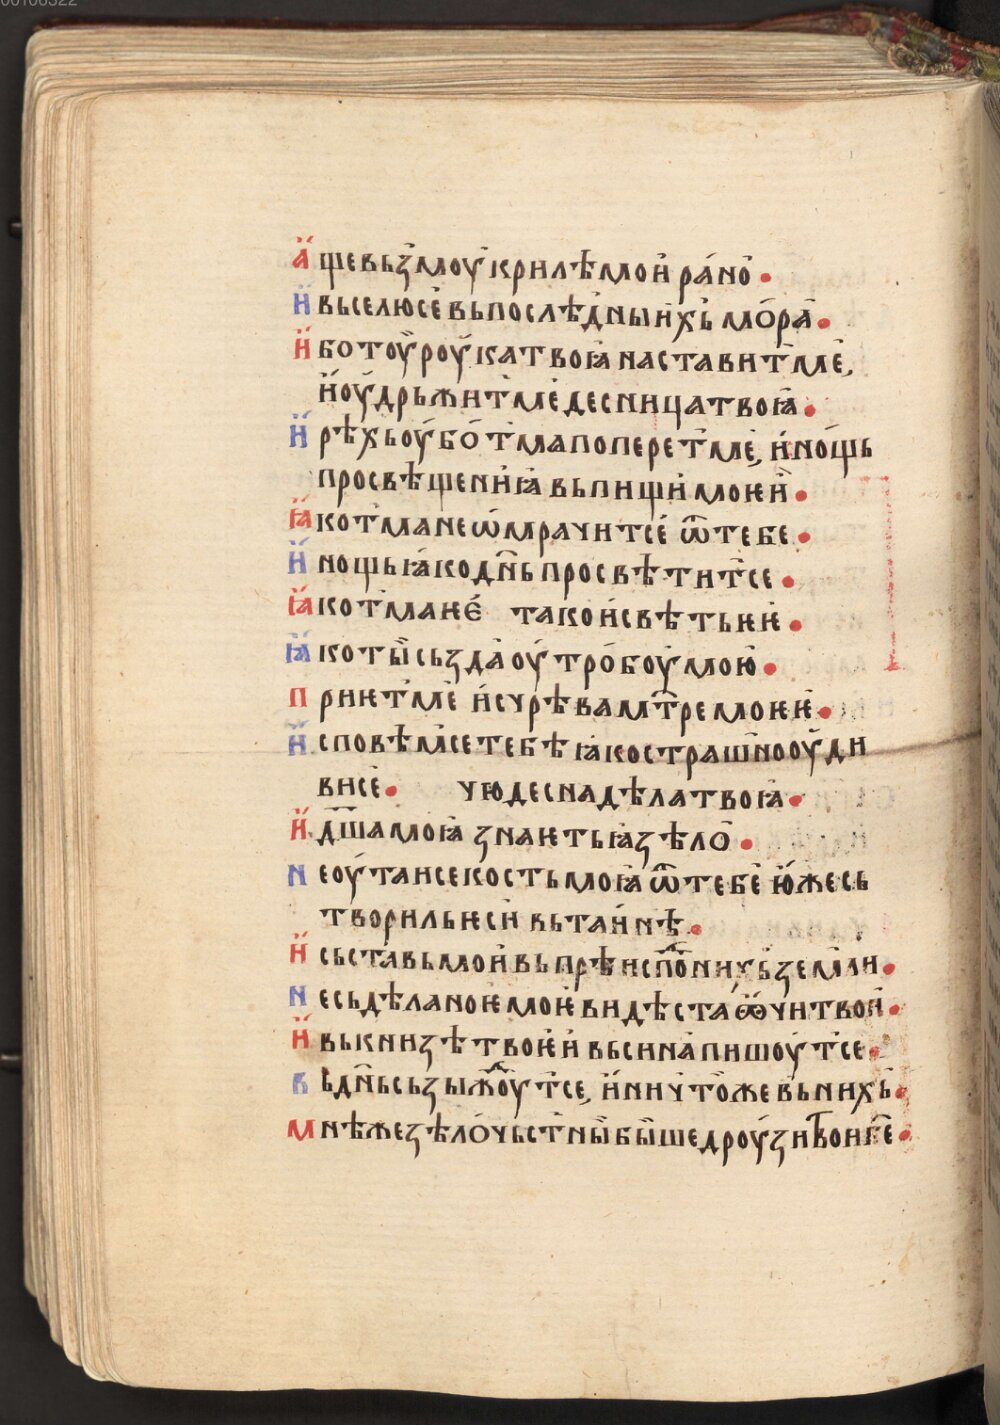 00108322
А҆́щевьз̾моу҆крилѣмои҆ра́но҆.
И҆вьселюсе҆вьпослѣд̾ныи҆хь҆мо́ра҆.
И҆ботоу҆роу҆катвоꙗ҆наставит̾ме҆,
и҆оу҆дрьжит̾ме҆десницатвоꙗ҆.
И҆рѣхьоу҆бо҆т̾мапоперет̾ме҆, и҆но́щь
просвѣщениꙗ҆вьпищи҆моѥи҆.
Ꙗ҆кот̾манеѡ҆мрачитсе҆ ѿтебе.
И҆нощьꙗ҆кодн҃ьпросвѣтит̾се.
Ꙗ҆кот̾маѥе҆ такои҆свѣтьѥѥ҆.
Ꙗ҆коты҆сьзда҆оу҆тро́боу҆мою҆.
Приѥт̾ме҆ и҆счрѣвамт҃ремоѥѥ҆.
И҆сповѣм̾сетебѣꙗ҆кострашнооу҆ди
висе҆. чюдеснадѣлатвоꙗ҆.
И҆дш҃амоꙗ҆ знаѥтьꙗ҆зѣло҆.
Неоу҆таисекостьмоꙗ҆ѿтебе҆ю҆жесь
творильѥси҆ вьтаи҆нѣ.
И҆сьставьмои҆вьпрѣиспо҆нихь҆земли.
Несьдѣланоѥмоѥ҆видѣстаѻ҆читвои҆.
И҆выкнизѣтвоѥи҆вьсина҆пишоу҆т̾се.
Вьдн҃ьсьзыж҆оу҆т̾се, и҆ничто́жевьнихь҆.
Мнѣжезѣло҆чьст̾ны҆бы҆шедроу҆зитвоиб҃е.